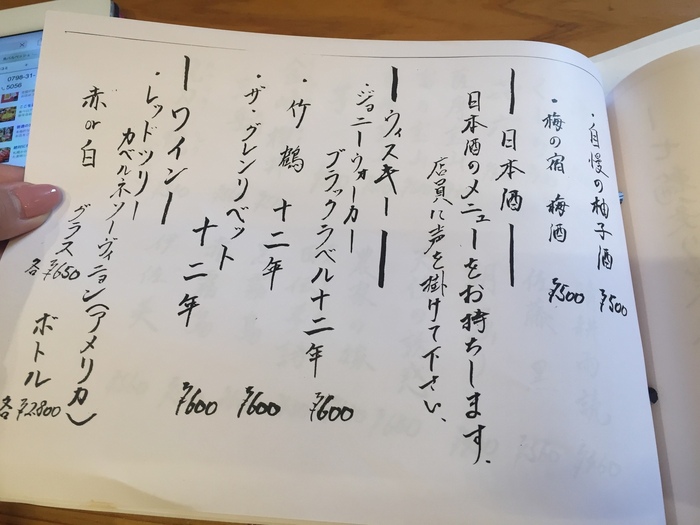 ・自慢の柚子酒 ¥500
・梅の宿 梅酒 ¥500
ー日本酒ー
日本酒のメニューをお持ちします。
店員に声を掛けて下さい。
ーウィスキーー
・ジョニーウォーカー
ブラックラベル十二年 ¥600
・竹鶴 十二年 ¥600
・ザ・グレンリベット
十二年 ¥600
ーワインー
・レッドツリー
カベルネソーヴィニョン(アメリカ)
赤or白 グラス各¥650 ボトル各¥2.800
0798-31-
5056